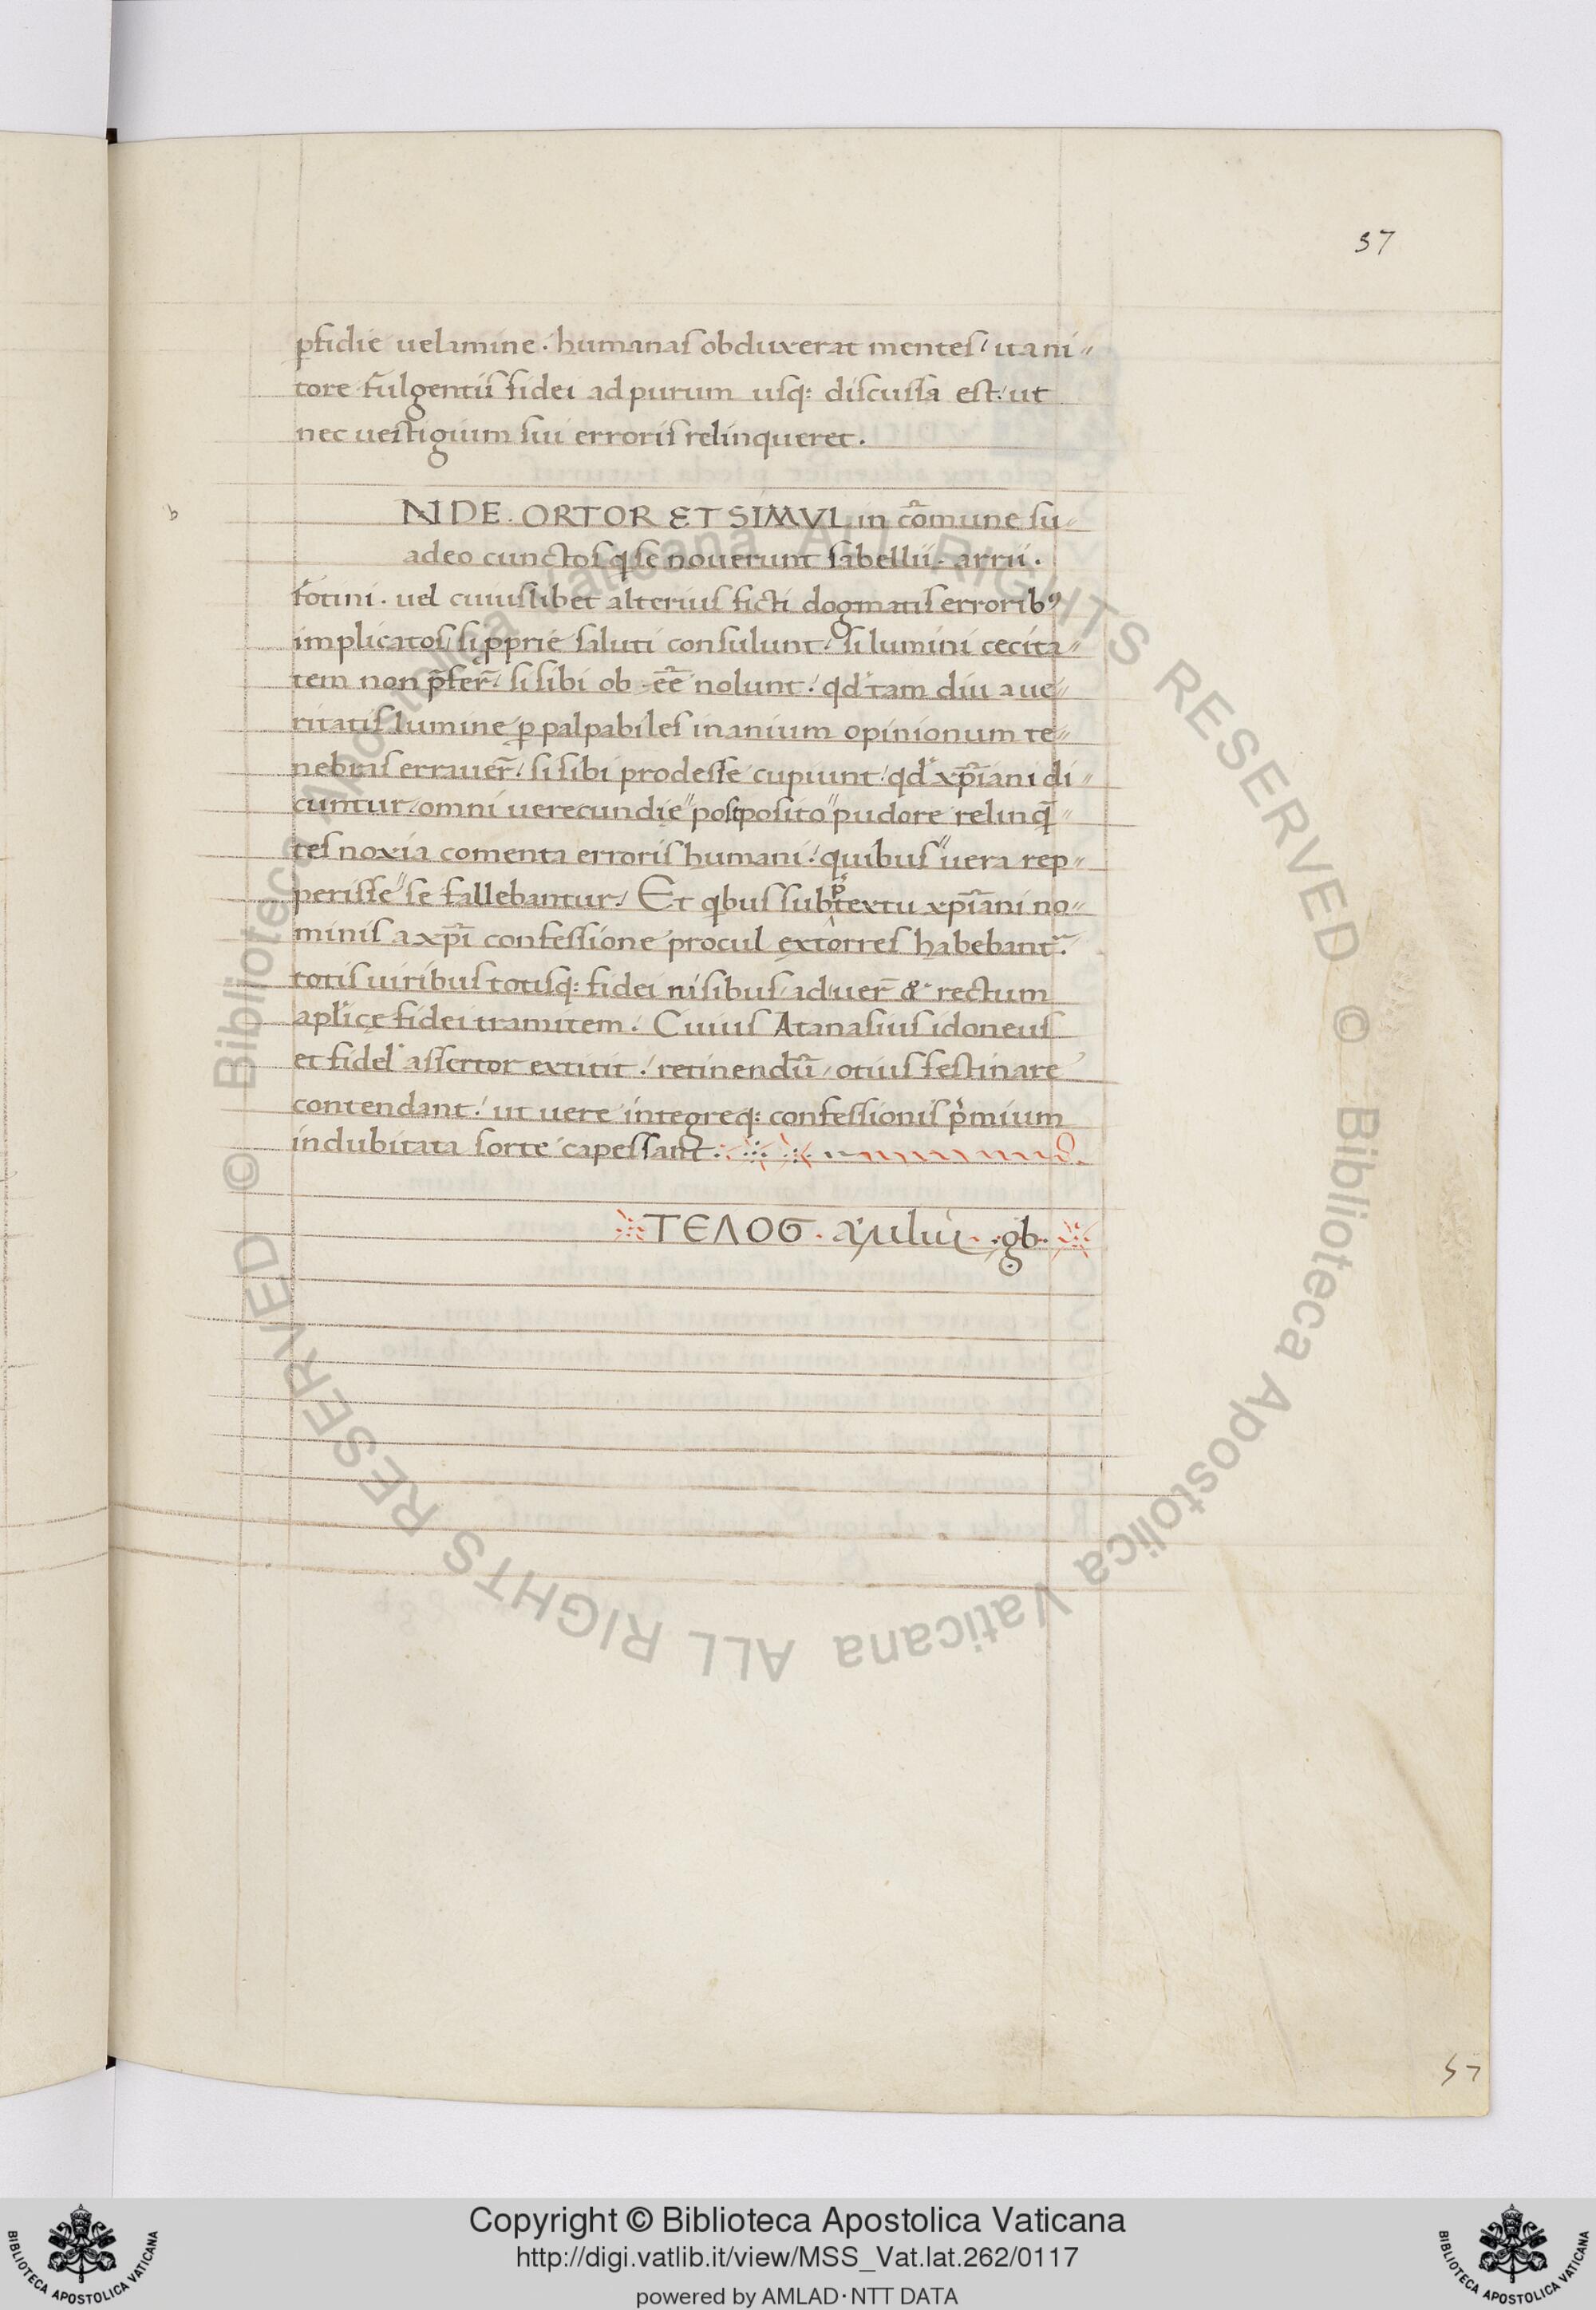 57
ꝑfidię uelamine · humanas obduxerat mentes / ita ni〃
tore fulgentis fidei ad purum usq: discussa est / ut
nec uestigium sui erroris relinqueret.
b
NDE · ORTOR ET SIMVL in cõmune su〃
adeo cunctos q se nouerunt sabellii · arrii ·
fotini · uel cuiuslibet alterius ficti dogmatis errorib⁹
implicatos / si ꝓprię saluti consulunt / si lumini cecita〃
tem non p̃fer̃ / si sibi ob · eẽ nolunt / qd tam diu a ue〃
ritatis lumine ꝑ palpabiles inanium opinionum te〃
nebras errauer̃ / si sibi prodesse cupiunt / qd xp̃iani di〃
cuntur / omni uerecundię〃 postposito〃 pudore relinq̃〃
tes noxia comenta erroris humani / quibus〃 uera rep〃
perisse〃 se fallebantur / Et qbus sub p̃textu xp̃iani no〃
minis a xp̃i confessione procul extorres habebant̃.
totis uiribus totisq: fidei nisibus / ad uer̃ & rectum
aplicę fidei tramitem / Cuius Atanasius idoneus
et fidel' assertor extitit / retinendũ / otius festinare
contendant / ut uere integreq: confessionis p̃mium
indubitata sorte capessant.
ΤΕΛΟϬ · · gb ·
57
Copyright © Biblioteca Apostolica Vaticana
http://digi.vatlib.it/view/MSS_Vat.lat.262/0117
powered by AMLAD·NTT DATA
BIBLIOTECA APOSTOLICA VATICANA
BIBLIOTECA APOSTOLICA VATICANA
© Biblioteca Apostolica Vaticana ALL RIGHTS RESERVED © Biblioteca Apostolica Vaticana ALL RIGHTS RESERVED